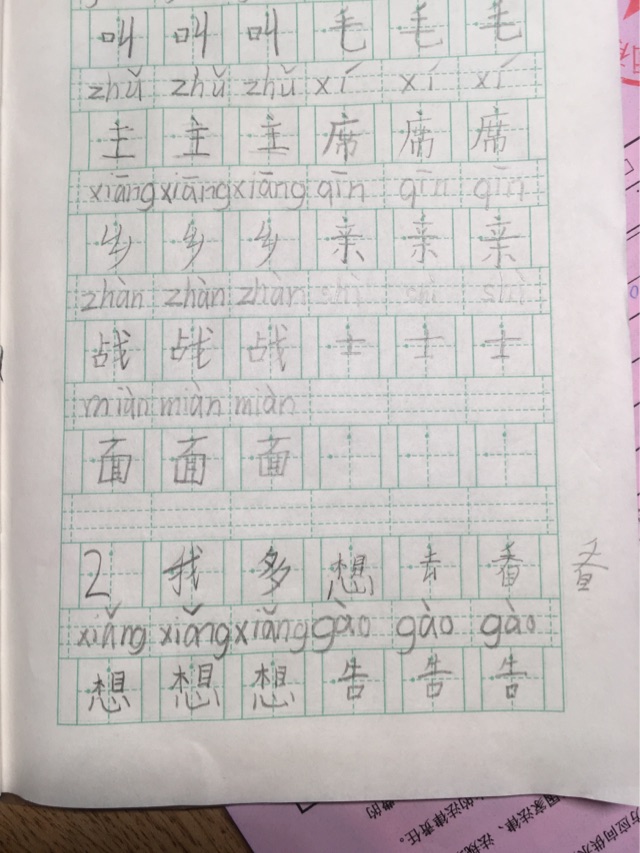 叫 叫 叫 毛 毛 毛
zhǔ zhǔ zhǔ xí xí xí
主 主 主 席 席 席
xiāng xiāng xiāng qīn qīn qīn
乡 乡 乡 亲 亲 亲
zhàn zhàn zhàn shì shì shì
战 战 战 士 士 士
miàn miàn miàn
面 面 面
2 我 多 想 去 看
xiǎng xiǎng xiǎng gào gào gào
想 想 想 告 告 告